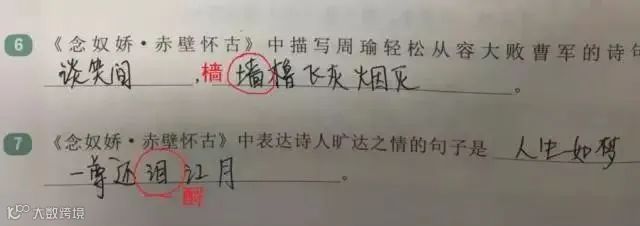 6 《念奴娇·赤壁怀古》中描写周瑜轻松从容大败曹军的诗句
谈笑间,樯 墙橹飞灰烟灭。
7 《念奴娇·赤壁怀古》中表达诗人旷达之情的句子是 人生如梦
一尊还泪江月。
酹
大数跨境